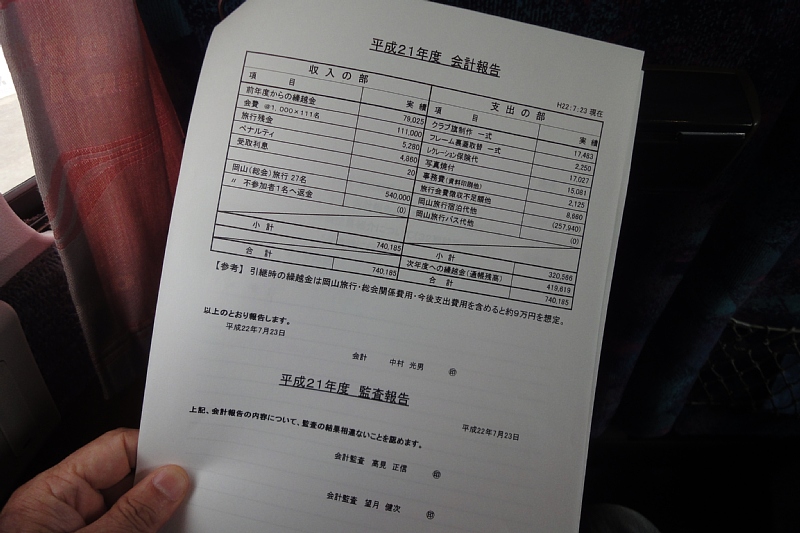 平成21年度 会計報告
H22:7:23 現在
収入の部 支出の部
項 目 実 績 項 目 実 績
前年度からの繰越金 79,025 クラブ旗制作 一式 17,483
会費 @1,000×111名 111,000 フレーム裏蓋取替 一式 2,250
旅行残金 5,280 レクレーション保険代 17,027
ペナルティ 4,860 写真焼付 15,081
受取利息 20 事務費(資料印刷他) 2,125
旅行会費徴収不足額他 8,660
岡山(総会)旅行 27名 540,000 岡山旅行宿泊代他 (257,940)
〃 不参加者1名へ返金 (0) 岡山旅行バス代他 (0)
小 計 740,185 小 計 320,566
次年度への繰越金(通帳残高) 419,619
合 計 740,185 合 計 740,185
【参考】 引継時の繰越金は岡山旅行・総会関係費用・今後支出費用を含めると約9万円を想定。
以上のとおり報告します。
平成22年7月23日
会計 中村 光男 ㊞
平成21年度 監査報告
平成22年7月23日
上記、会計報告の内容について、監査の結果相違ないことを認めます。
会計監査 高見 正信 ㊞
会計監査 望月 健次 ㊞